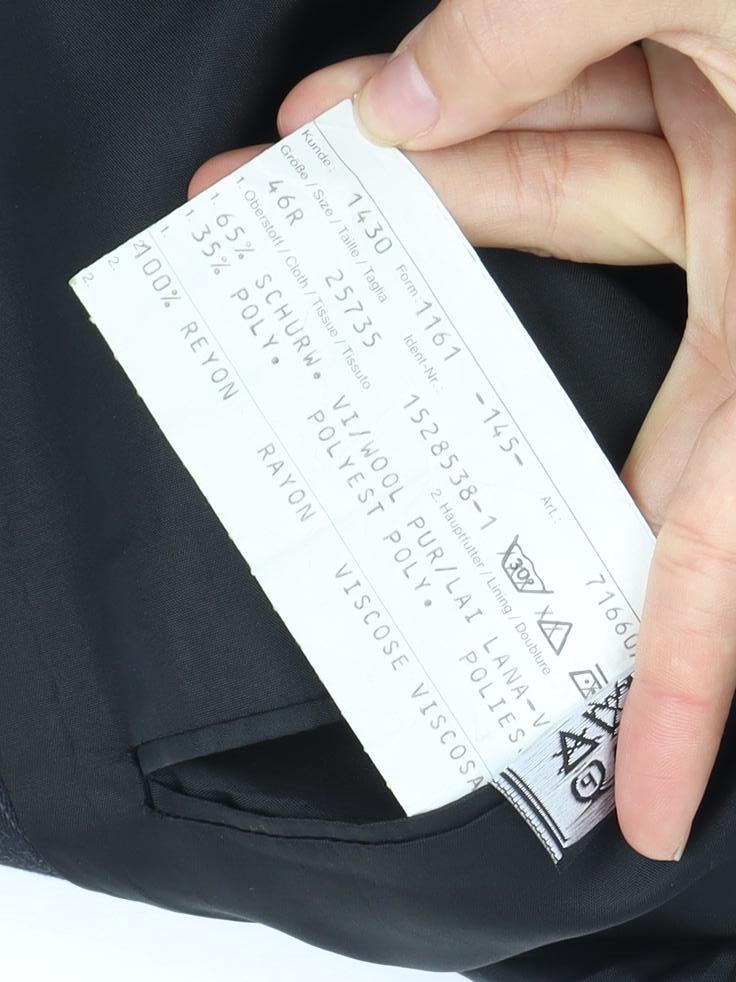 Kunde: 1430 Form: 1161 -145- Art.: 71660
Größe / Size / Taille / Taglia Ident-Nr.:
46R 25735 1528538-1
1. Oberstoff / Cloth / Tissue / Tissuto 2. Hauptfutter / Lining / Doublure
1. 65% SCHURW. VI/WOOL PUR/LAI LANA-V
1. 35% POLY. POLYEST POLY. POLIES
1.
2. 100% REYON RAYON VISCOSE VISCOSA
2.